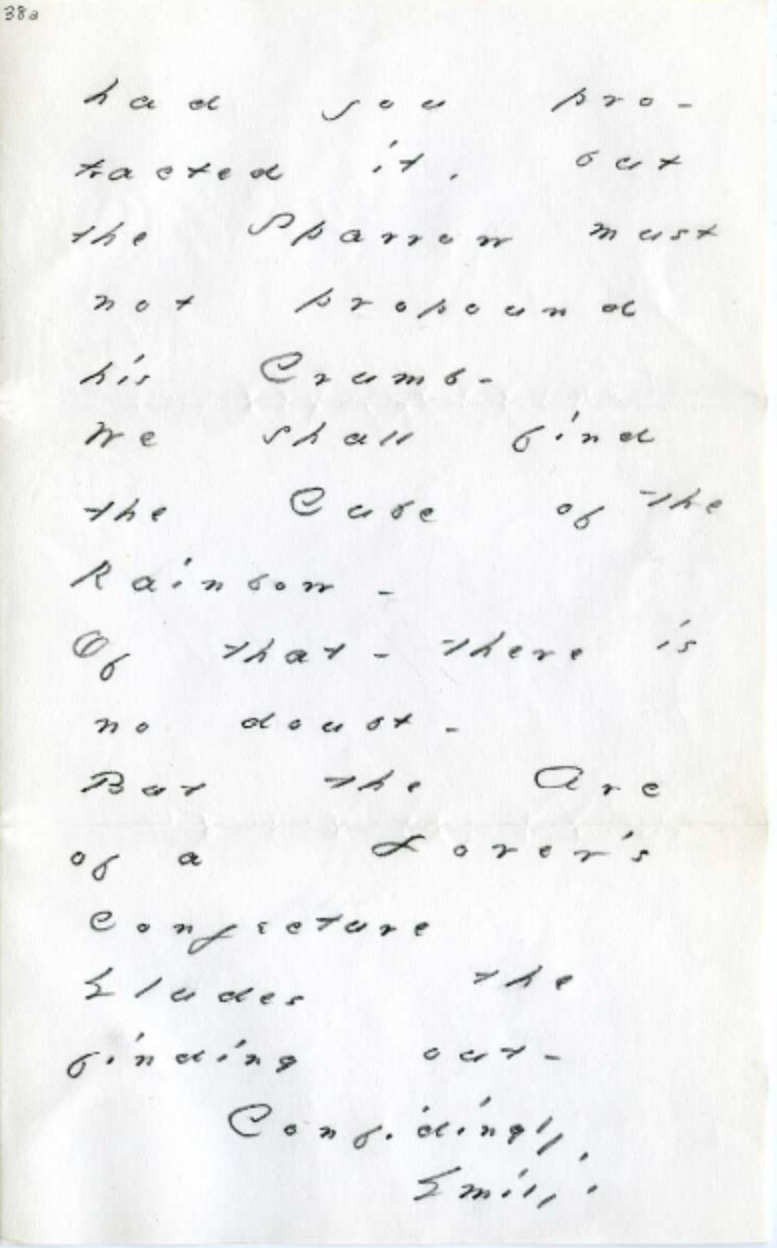 38a
had you pro-
tracted it, but
the Sparrow must
not propound
his Crumb-
We shall find
the Cube of the
Rainbow -
Of that - there is
no doubt -
But the Arc
of a Lover's
Conjecture
Eludes the
finding out -
Confidingly,
Emily.